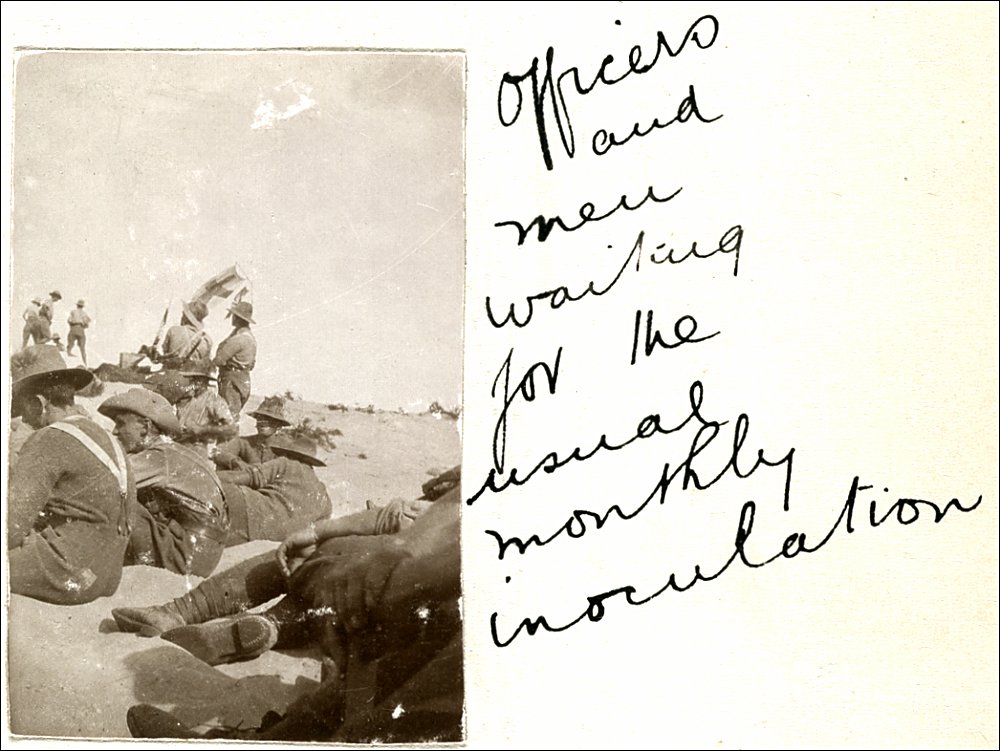 Officers
and
men
waiting
for the
usual
monthly
inoculation